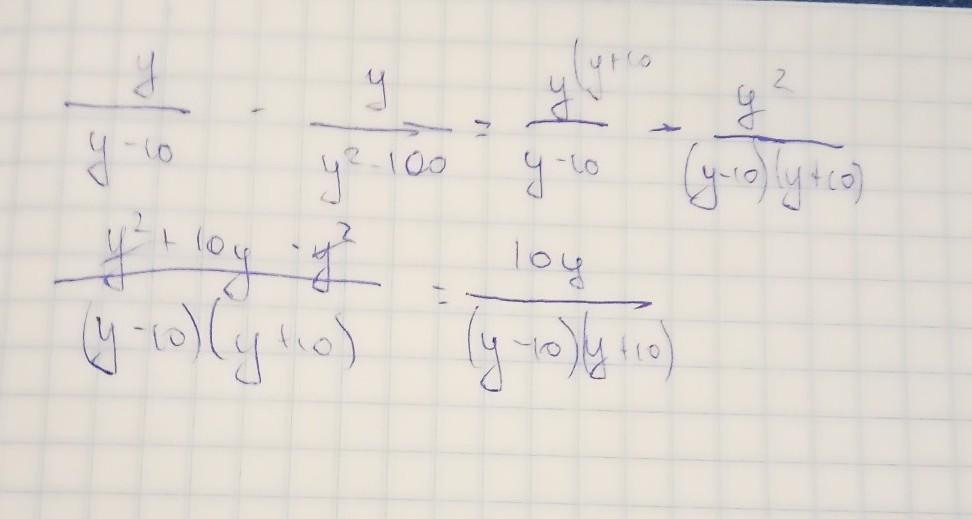 y/(y-10) - y/(y²-100) = y(y+10/(y-10) - y²/((y-10)(y+10))
(y²+10y-y²)/((y-10)(y+10)) = 10y/((y-10)(y+10))